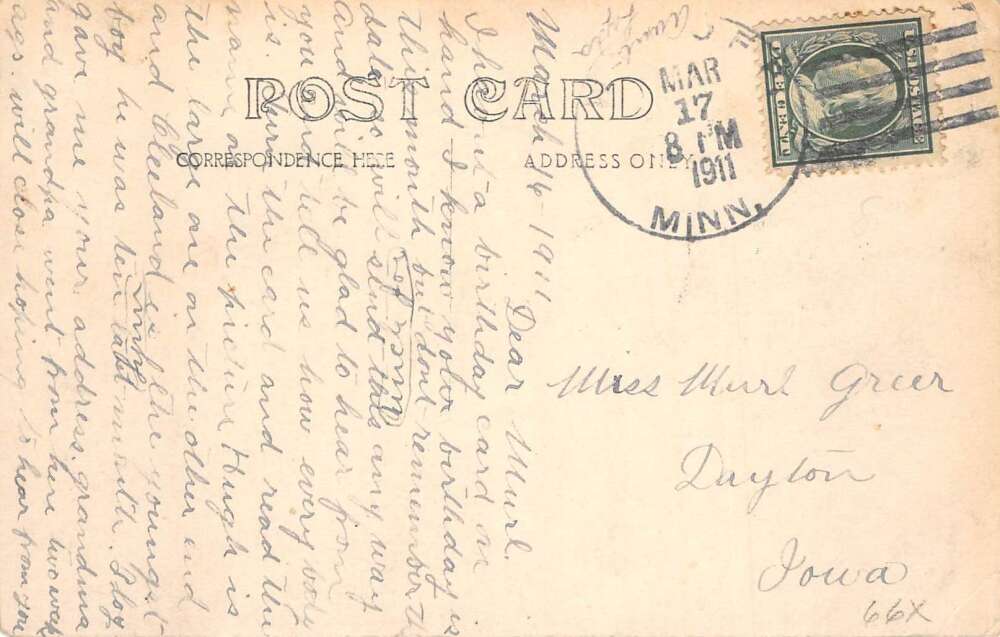 POST CARD
CORRESPONDENCE HERE
ADDRESS ONLY
MAR
17
8 PM
1911
MINN.
U.S. POSTAGE
ONE CENT
March 16-1911
Dear Murl.
I have not a birthday card on
hand I know your birthday is
this month but dont remember the
date so will send this any way
and will be glad to hear from
you and tell us how every body
is. turn the card and read the
name on the picture Hugh is
the large one on the other end
and Cleeland is the youngest
boy he was ten last month. I
gave me your address. grandma
and grandpa went from here two weeks
ago. will close hoping to hear from you
Aunt
Miss Murl Greer
Dayton
Iowa
66X